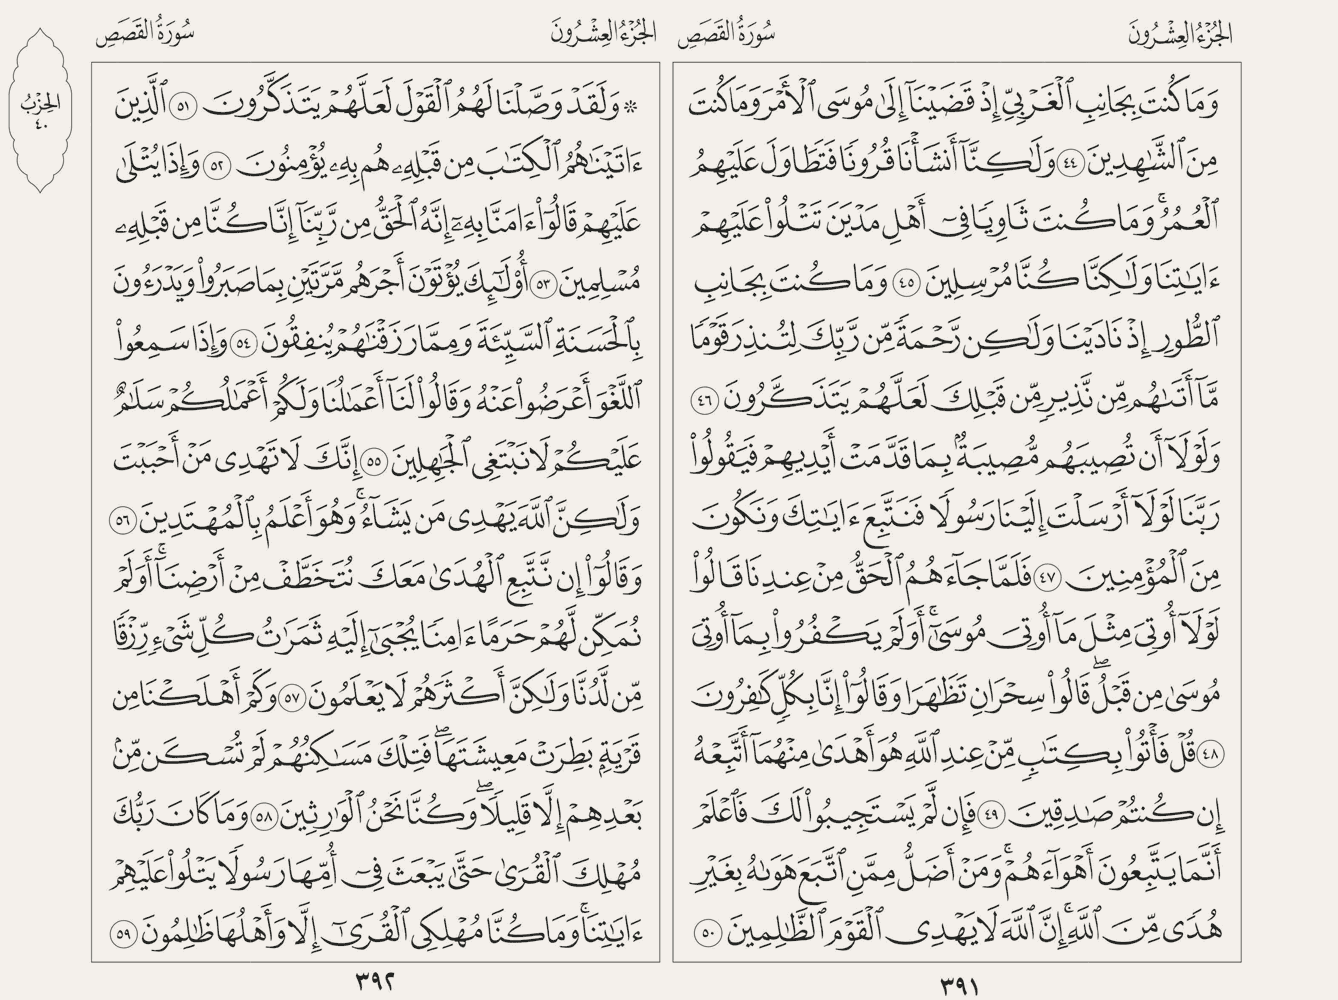 الجُزْءُ العِشْرُونَ
سُورَةُ القَصَصِ
وَمَا كُنتَ بِجَانِبِ ٱلْغَرْبِيِّ إِذْ قَضَيْنَآ إِلَىٰ مُوسَى ٱلْأَمْرَ وَمَا كُنتَ
مِنَ ٱلشَّٰهِدِينَ ٤٤ وَلَٰكِنَّآ أَنشَأْنَا قُرُونًا فَتَطَاوَلَ عَلَيْهِمُ
ٱلْعُمُرُۚ وَمَا كُنتَ ثَاوِيًا فِىٓ أَهْلِ مَدْيَنَ تَتْلُوا۟ عَلَيْهِمْ
ءَايَٰتِنَا وَلَٰكِنَّا كُنَّا مُرْسِلِينَ ٤٥ وَمَا كُنتَ بِجَانِبِ
ٱلطُّورِ إِذْ نَادَيْنَا وَلَٰكِن رَّحْمَةً مِّن رَّبِّكَ لِتُنذِرَ قَوْمًا
مَّآ أَتَىٰهُم مِّن نَّذِيرٍ مِّن قَبْلِكَ لَعَلَّهُمْ يَتَذَكَّرُونَ ٤٦
وَلَوْلَآ أَن تُصِيبَهُم مُّصِيبَةٌۢ بِمَا قَدَّمَتْ أَيْدِيهِمْ فَيَقُولُوا۟
رَبَّنَا لَوْلَآ أَرْسَلْتَ إِلَيْنَا رَسُولًا فَنَتَّبِعَ ءَايَٰتِكَ وَنَكُونَ
مِنَ ٱلْمُؤْمِنِينَ ٤٧ فَلَمَّا جَآءَهُمُ ٱلْحَقُّ مِنْ عِندِنَا قَالُوا۟
لَوْلَآ أُوتِىَ مِثْلَ مَآ أُوتِىَ مُوسَىٰٓۚ أَوَلَمْ يَكْفُرُوا۟ بِمَآ أُوتِىَ
مُوسَىٰ مِن قَبْلُۖ قَالُوا۟ سِحْرَانِ تَظَٰهَرَا وَقَالُوٓا۟ إِنَّا بِكُلٍّ كَٰفِرُونَ
٤٨ قُلْ فَأْتُوا۟ بِكِتَٰبٍ مِّنْ عِندِ ٱللَّهِ هُوَ أَهْدَىٰ مِنْهُمَآ أَتَّبِعْهُ
إِن كُنتُمْ صَٰدِقِينَ ٤٩ فَإِن لَّمْ يَسْتَجِيبُوا۟ لَكَ فَٱعْلَمْ
أَنَّمَا يَتَّبِعُونَ أَهْوَآءَهُمْۚ وَمَنْ أَضَلُّ مِمَّنِ ٱتَّبَعَ هَوَىٰهُ بِغَيْرِ
هُدًى مِّنَ ٱللَّهِۚ إِنَّ ٱللَّهَ لَا يَهْدِى ٱلْقَوْمَ ٱلظَّٰلِمِينَ ٥٠
٣٩١
الجُزْءُ العِشْرُونَ
سُورَةُ القَصَصِ
الحِزْبُ
٤٠
۞ وَلَقَدْ وَصَّلْنَا لَهُمُ ٱلْقَوْلَ لَعَلَّهُمْ يَتَذَكَّرُونَ ٥١ ٱلَّذِينَ
ءَاتَيْنَٰهُمُ ٱلْكِتَٰبَ مِن قَبْلِهِۦ هُم بِهِۦ يُؤْمِنُونَ ٥٢ وَإِذَا يُتْلَىٰ
عَلَيْهِمْ قَالُوٓا۟ ءَامَنَّا بِهِۦٓ إِنَّهُ ٱلْحَقُّ مِن رَّبِّنَآ إِنَّا كُنَّا مِن قَبْلِهِۦ
مُسْلِمِينَ ٥٣ أُو۟لَٰٓئِكَ يُؤْتَوْنَ أَجْرَهُم مَّرَّتَيْنِ بِمَا صَبَرُوا۟ وَيَدْرَءُونَ
بِٱلْحَسَنَةِ ٱلسَّيِّئَةَ وَمِمَّا رَزَقْنَٰهُمْ يُنفِقُونَ ٥٤ وَإِذَا سَمِعُوا۟
ٱللَّغْوَ أَعْرَضُوا۟ عَنْهُ وَقَالُوا۟ لَنَآ أَعْمَٰلُنَا وَلَكُمْ أَعْمَٰلُكُمْ سَلَٰمٌ
عَلَيْكُمْ لَا نَبْتَغِى ٱلْجَٰهِلِينَ ٥٥ إِنَّكَ لَا تَهْدِى مَنْ أَحْبَبْتَ
وَلَٰكِنَّ ٱللَّهَ يَهْدِى مَن يَشَآءُۚ وَهُوَ أَعْلَمُ بِٱلْمُهْتَدِينَ ٥٦
وَقَالُوٓا۟ إِن نَّتَّبِعِ ٱلْهُدَىٰ مَعَكَ نُتَخَطَّفْ مِنْ أَرْضِنَآۚ أَوَلَمْ
نُمَكِّن لَّهُمْ حَرَمًا ءَامِنًا يُجْبَىٰٓ إِلَيْهِ ثَمَرَٰتُ كُلِّ شَىْءٍ رِّزْقًا
مِّن لَّدُنَّا وَلَٰكِنَّ أَكْثَرَهُمْ لَا يَعْلَمُونَ ٥٧ وَكَمْ أَهْلَكْنَا مِن
قَرْيَةٍۭ بَطِرَتْ مَعِيشَتَهَاۖ فَتِلْكَ مَسَٰكِنُهُمْ لَمْ تُسْكَن مِّنۢ
بَعْدِهِمْ إِلَّا قَلِيلًاۖ وَكُنَّا نَحْنُ ٱلْوَٰرِثِينَ ٥٨ وَمَا كَانَ رَبُّكَ
مُهْلِكَ ٱلْقُرَىٰ حَتَّىٰ يَبْعَثَ فِىٓ أُمِّهَا رَسُولًا يَتْلُوا۟ عَلَيْهِمْ
ءَايَٰتِنَاۚ وَمَا كُنَّا مُهْلِكِى ٱلْقُرَىٰٓ إِلَّا وَأَهْلُهَا ظَٰلِمُونَ ٥٩
٣٩٢